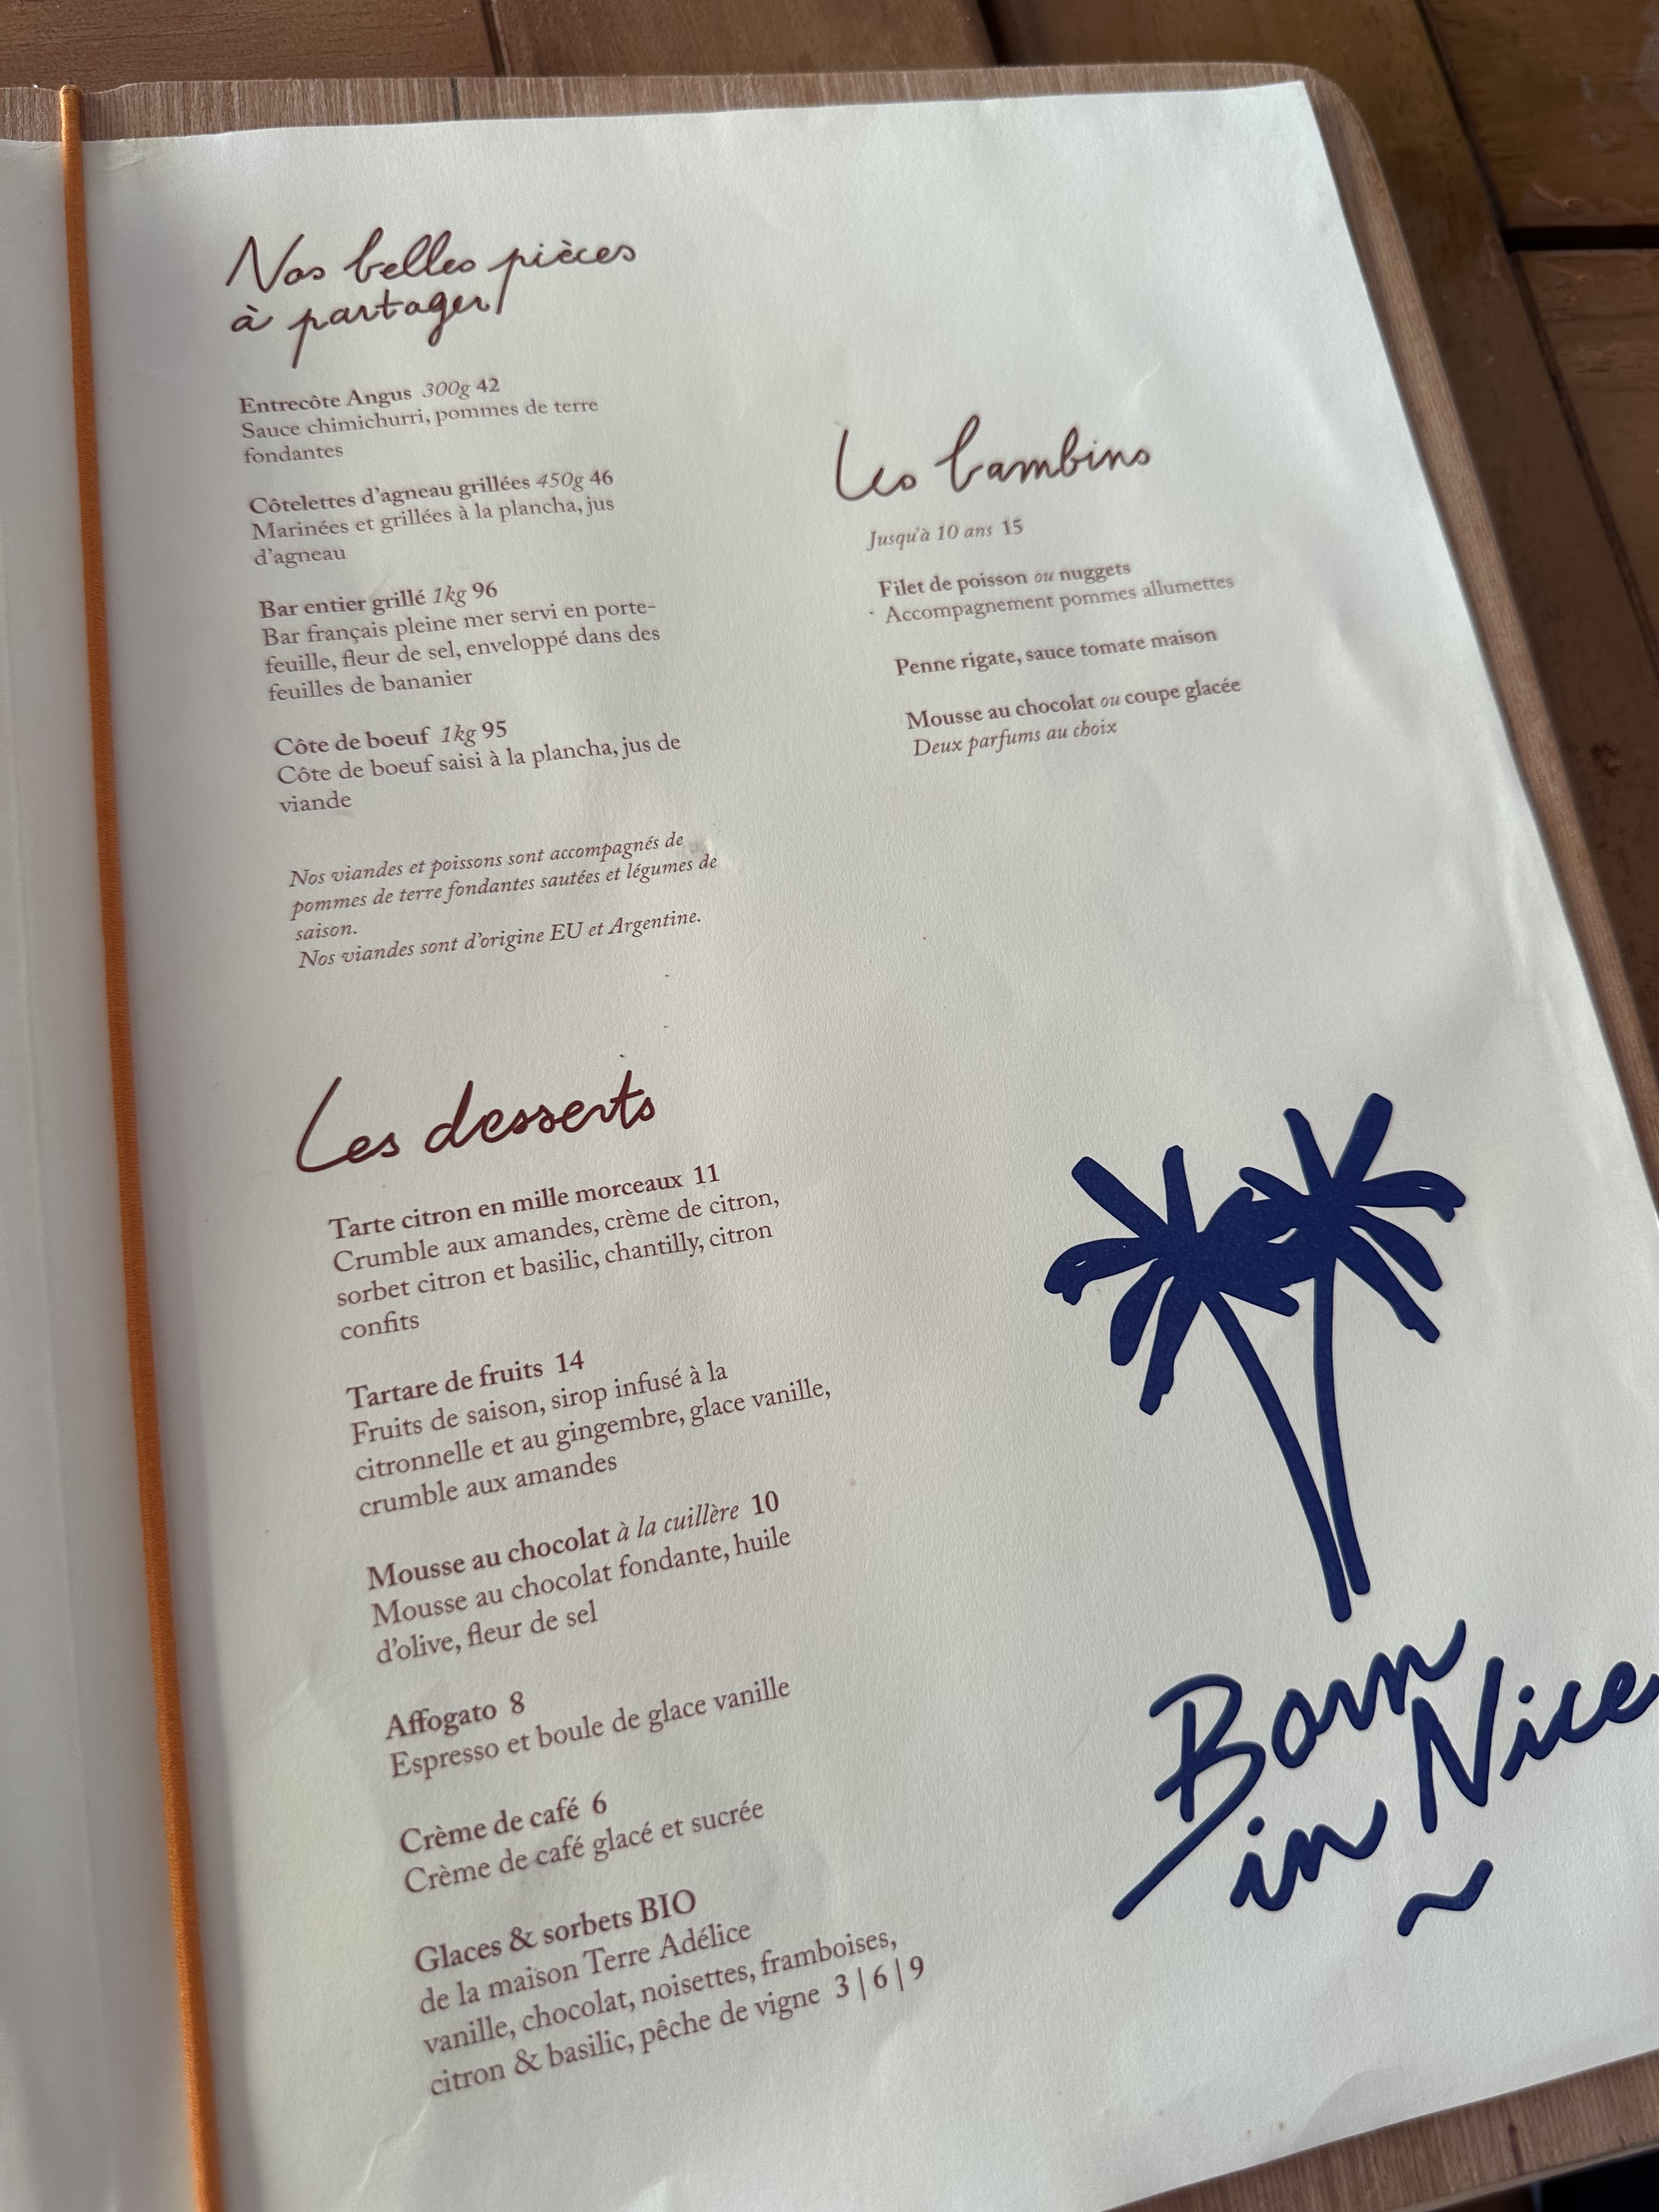 Nos belles pièces
à partager
Entrecôte Angus 300g 42
Sauce chimichurri, pommes de terre
fondantes
Côtelettes d'agneau grillées 450g 46
Marinées et grillées à la plancha, jus
d'agneau
Bar entier grillé 1kg 96
Bar français pleine mer servi en porte-
feuille, fleur de sel, enveloppé dans des
feuilles de bananier
Côte de boeuf 1kg 95
Côte de boeuf saisi à la plancha, jus de
viande
Nos viandes et poissons sont accompagnés de
pommes de terre fondantes sautées et légumes de
saison.
Nos viandes sont d'origine EU et Argentine.
Les bambins
Jusqu'à 10 ans 15
Filet de poisson ou nuggets
Accompagnement pommes allumettes
Penne rigate, sauce tomate maison
Mousse au chocolat ou coupe glacée
Deux parfums au choix
Les desserts
Tarte citron en mille morceaux 11
Crumble aux amandes, crème de citron,
sorbet citron et basilic, chantilly, citron
confits
Tartare de fruits 14
Fruits de saison, sirop infusé à la
citronnelle et au gingembre, glace vanille,
crumble aux amandes
Mousse au chocolat à la cuillère 10
Mousse au chocolat fondante, huile
d'olive, fleur de sel
Affogato 8
Espresso et boule de glace vanille
Crème de café 6
Crème de café glacé et sucrée
Glaces & sorbets BIO
de la maison Terre Adélice
vanille, chocolat, noisettes, framboises,
citron & basilic, pêche de vigne 3 | 6 | 9
Born
in Nice